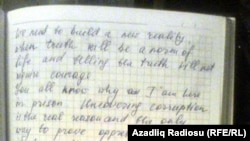 We need to build a new reality,
when truth will be a norm of
life and telling the truth will not
need courage
You all know why am I am here
in prison. Uncovering corruption
is the real reason and the only
way to prove
Azadlıq Radiosu (RFE/RL)